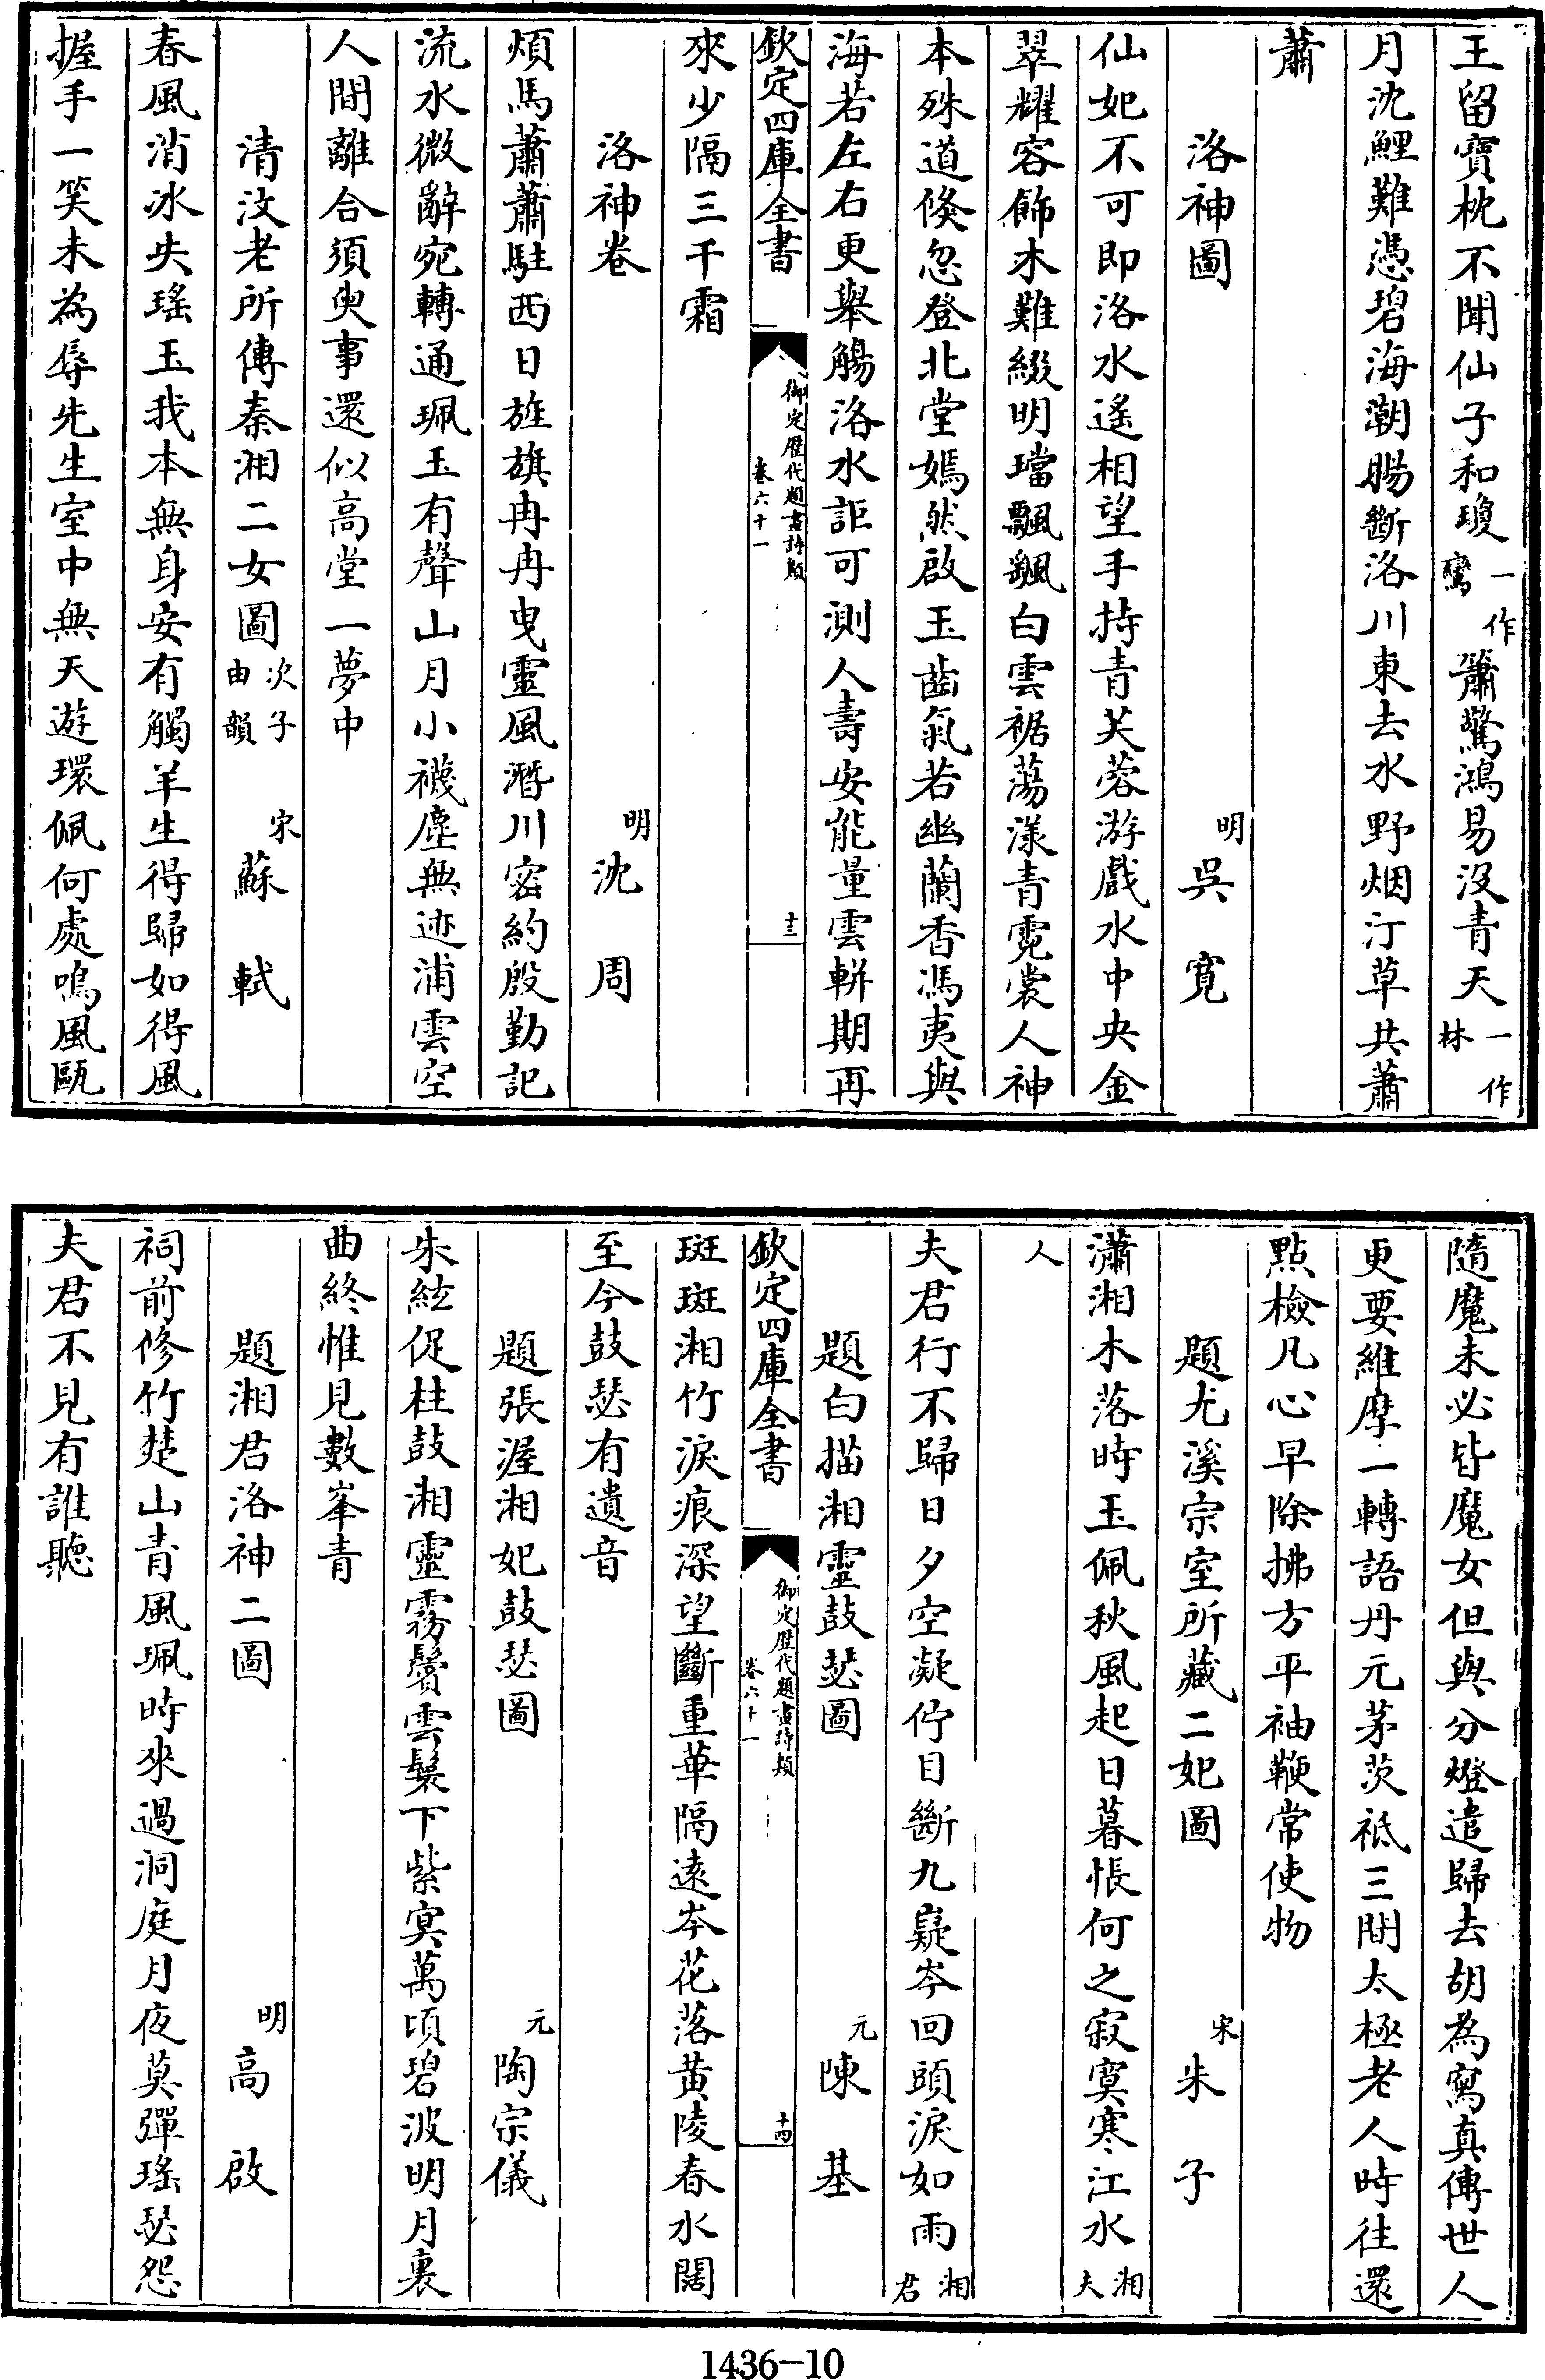 王留寶枕不聞仙子和瓊一作鸞簫驚鴻易没青天一作林
月沈鯉難憑碧海潮腸斷洛川東去水野烟汀草共蕭
蕭
洛神圖 明吳寛
仙妃不可即洛水遙相望手持青芙蓉游戲水中央金
翠耀容飾木難綴明璫飄飖白雲裾蕩漾青霓裳人神
本殊道倏忽登北堂嫣然啟玉齒氣若幽蘭香馮夷與
海若左右更舉觴洛水詎可測人壽安能量雲軿期再
欽定四庫全書 御定歷代題畫詩類 卷六十一 十三
來少隔三千霜
洛神卷 明沈周
煩馬蕭蕭駐西日旌旗冉冉曳靈風潛川密約殷勤記
流水微辭宛轉通珮玉有聲山月小襪塵無迹浦雲空
人間離合須臾事還似高堂一夢中
清汶老所傳秦湘二女圖次子由韻 宋蘇軾
春風消冰失瑤玉我本無身安有觸羊生得歸如得風
握手一笑未為辱先生室中無天遊環佩何處鳴風甌
隨魔未必皆魔女但與分燈遣歸去胡為寫真傳世人
更要維摩一轉語丹元茅茨祗三間太極老人時往還
點檢凡心早除拂方平袖鞭常使物
題尤溪宗室所藏二妃圖 宋朱子
瀟湘木落時玉佩秋風起日暮悵何之寂寞寒江水湘夫
人
夫君行不歸日夕空凝佇目斷九嶷岑回頭淚如雨湘君
題白描湘靈鼓瑟圖 元陳基
欽定四庫全書 御定歷代題畫詩類 卷六十一 十四
斑斑湘竹淚痕深望斷重華隔遠岑花落黄陵春水闊
至今鼓瑟有遺音
題張渥湘妃鼓瑟圖 元陶宗儀
朱絃促柱鼓湘靈霧鬢雲鬟下紫㝠萬頃碧波明月裏
曲終惟見數峯青
題湘君洛神二圖 明高啟
祠前修竹楚山青風珮時來過洞庭月夜莫彈瑤瑟怨
夫君不見有誰聽
1436-10